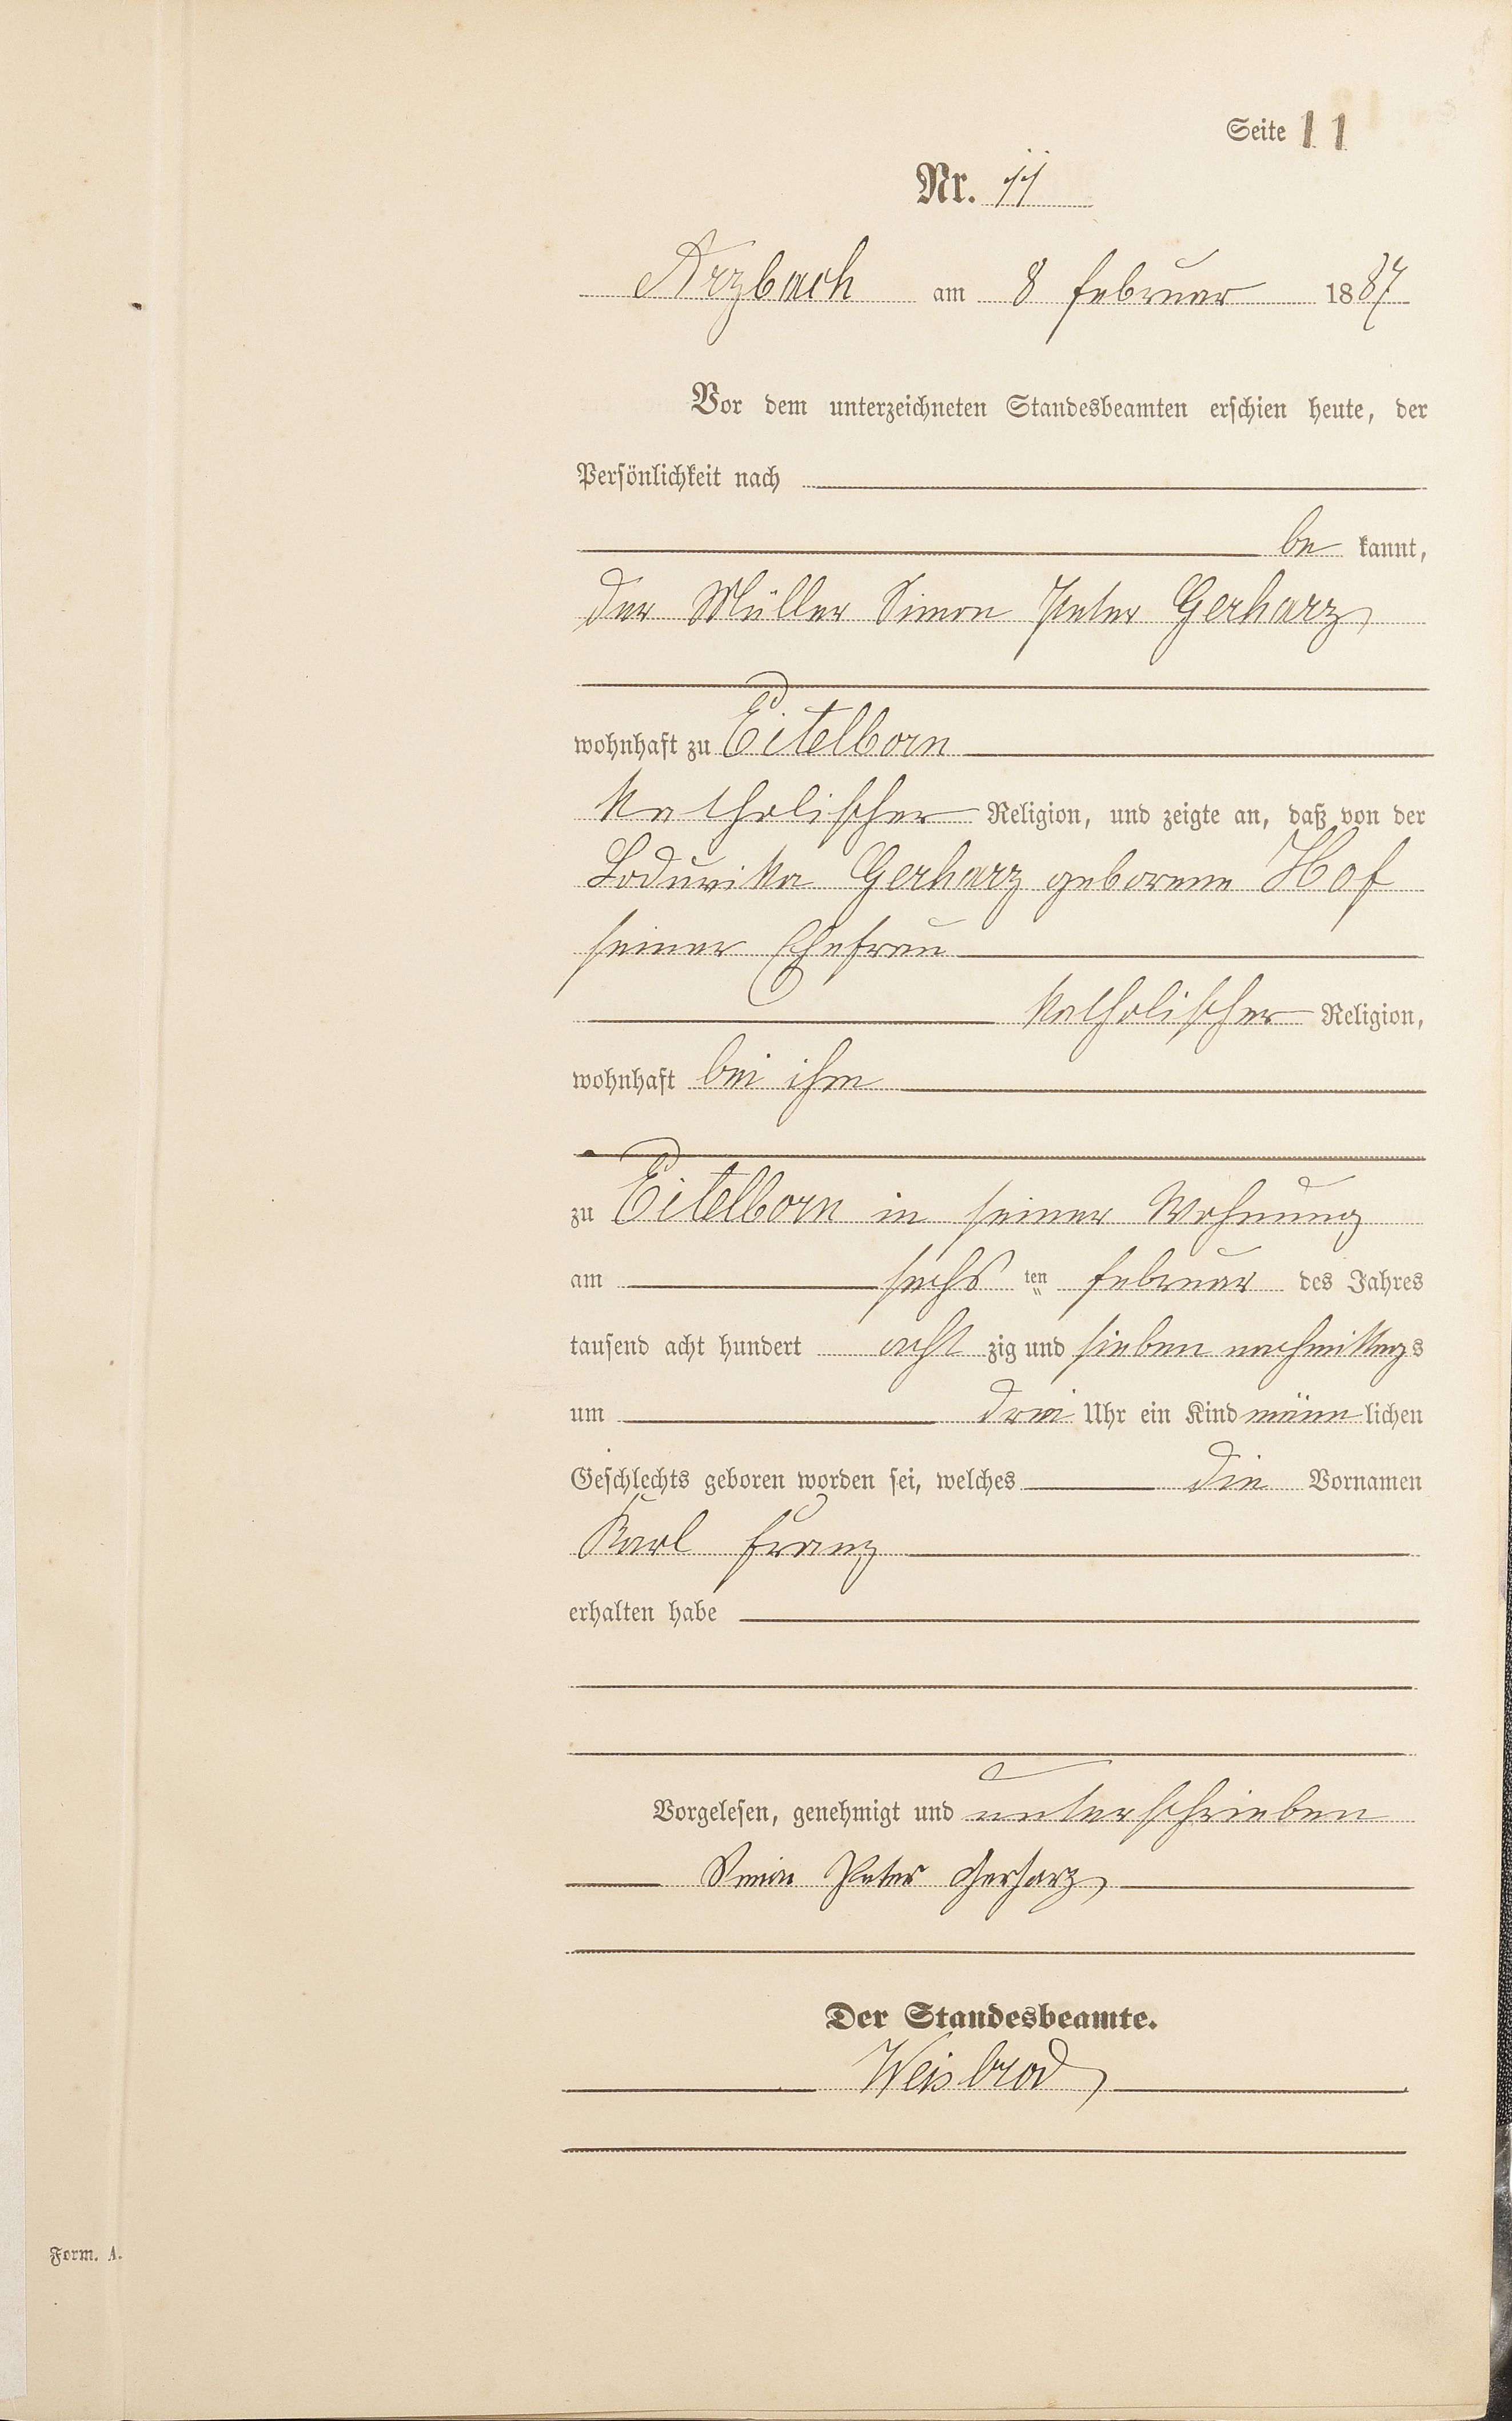 Seite 11
Nr. 11
Arzbach am 8 Februar 1887
Vor dem unterzeichneten Standesbeamten erschien heute, der
Persönlichkeit nach
be kannt,
der Müller Simon Peter Gerharz
wohnhaft zu Eitelborn
katholischer Religion, und zeigte an, daß von der
Loduvika Gerharz geborene Hof
seiner Ehefrau
katholischer Religion,
wohnhaft bei ihm
zu Eitelborn in seiner Wohnung
am sechs ten Februar des Jahres
tausend acht hundert acht zig und sieben nachmittags
um drei Uhr ein Kind männ lichen
Geschlechts geboren worden sei, welches die Vornamen
Karl Franz
erhalten habe
Vorgelesen, genehmigt und unterschrieben
Simon Peter Gerharz
Der Standesbeamte.
Weisbrod
Form. A.